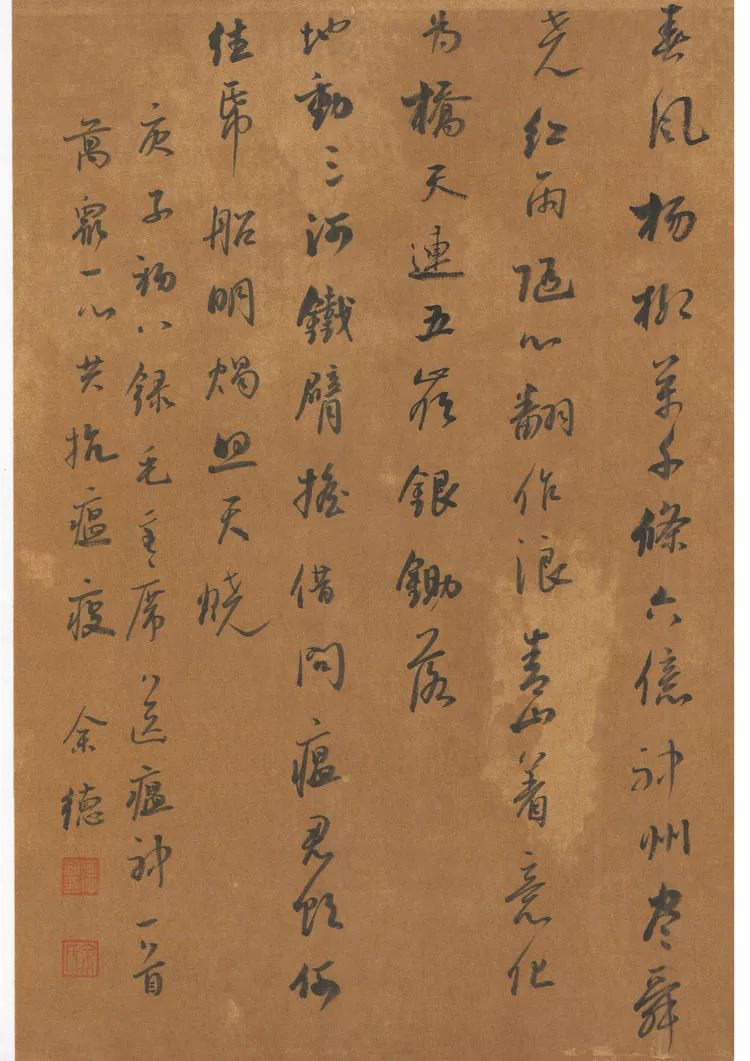 春风杨柳萬千條六億神州尽舜
尧红雨随心翻作浪青山着意化
为橋天連五岭銀鋤落
地動三河鐵臂摇借問瘟君欲何
往帋船明燭照天燒
庚子初八録毛主席送瘟神一首
萬眾一心共抗瘟疫 余德